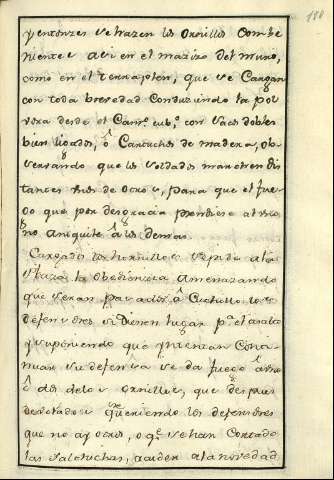 180
y entonzes se hazen los ornillos combe
niente, asi en el mazizo del muro,
como en el terraplen, que se cargan
con toda brevedad conduziendo la pol
vora desde el Cam.º cub.º con sacos dobles
bien ligados, ô Cartuchos de madera, ob
servando que los soldados marchen dis
tantes unos de otros, para que el fue
go que por desgracia prendiere al uno
no aniquile â los demas.
Cargados los hornillos se pide a la
plaza la obediencia amenazando
que seran pasados â Cuchillo los
defensores si tienen lugar p.ª el asalto
y suponiendo que yntentan Conti
nuar su defensa se da fuego â uno
ô dos de los ornillos, que despues
de volados queriendo los defensores
que no ay otros, o q.e se han Cortado
las salchichas, acuden a la novedad